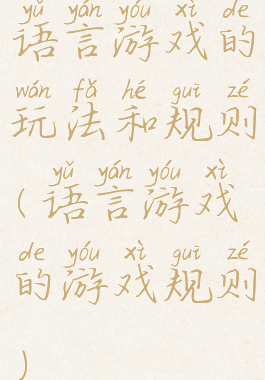 yǔ yán yóu xì de
语言游戏的
wán fǎ hé guī zé
玩法和规则
yǔ yán yóu xì
(语言游戏
de yóu xì guī zé
的游戏规则
)